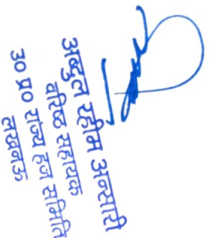 अब्दुल रहीम अन्सारी
वरिष्ठ सहायक
उ0 प्र0 राज्य हज समिति
लखनऊ